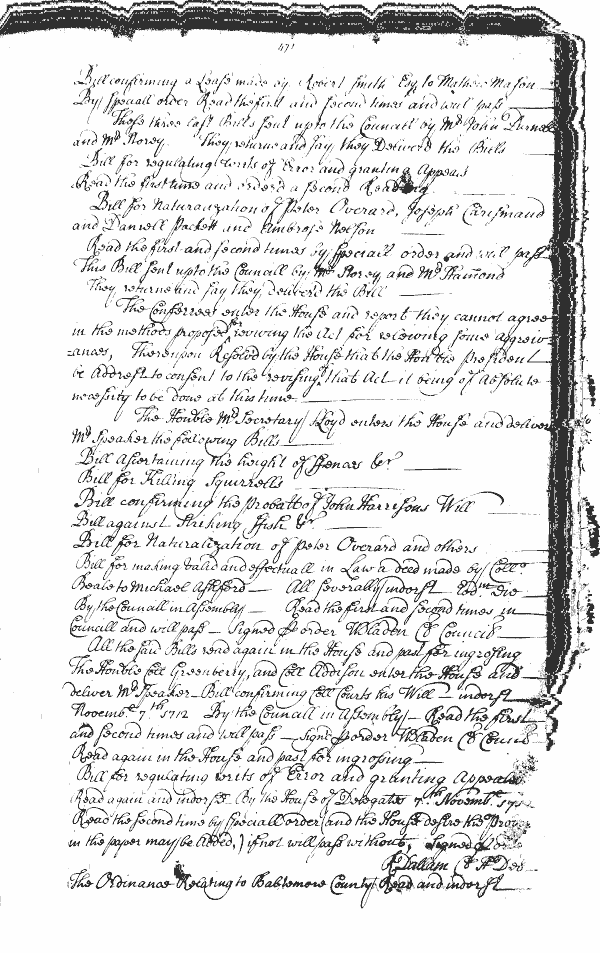 471
Bill confirming a Lease made by Robert Smith Esq to Mathew Mason
By speciall order Read the first and second times and will pass
These three last Bills sent up to the Councill by Mr John
and Mr Storey. They returne and say they Deliverd the Bills
Bill for regulating writs of Error and granting Appeals
Read the first time and orderd a second Reading
Bill for Naturalization of Peter Overard, Joseph
and Daniell Packett and Ambrose Nelson
Read the first and second times by speciall order and will pass
This Bill sent up to the Councill by Mr Storey and Mr Stamond
They returne and say they deliverd the Bill
The Conferrees enter the House and report they cannot agree
in the methods proposed for reviving the Act for releiving some aggreiv-
-ances, Thereupon Resolved by the House that the Honble President
be Addrest to consent to the revising that Act it being of Absolute
necessity to be done at this time
The Honble Mr Secretary Lloyd enters the House and delivers
Mr Speaker the following Bills
Bill Ascertaining the height of ffences &c
Bill for Killing Squirrells
Bill confirming the Probatt of John Harrisons Will
Bill against Striking ffish &c
Bill for Naturalization of Peter Overard and others
Bill for making valid and effectuall in Law a deed made by Collo
Beale to Michael Ashford All severally indorst Eod in die
By the Councill in Assembly Read the first and second times in
Councill and will pass Signed p order WBladen Cl Council
All the said Bills read again in the House and past for ingrosing
The Honble Coll Greenberry, and Coll Addison enter the House and
deliver Mr Speaker Bill confirming Coll Courts his Will indorst
Novembr 7th 1712 By the Councill in Assembly Read the first
and second times and will pass Signd p order WBladen Cl Council
Read again in the House and past for ingrosing
Bill for regulating writs of Error and granting Appeales
Read again and indorsed By the House of Delegates 7th Novembr 1712
Read the second time by speciall order (and the House desire the
in the paper may be added,) if not will pass without, Signed p order
R Dallam Cl H Del
The Ordinance Relating to Baltemore County Read and indorst